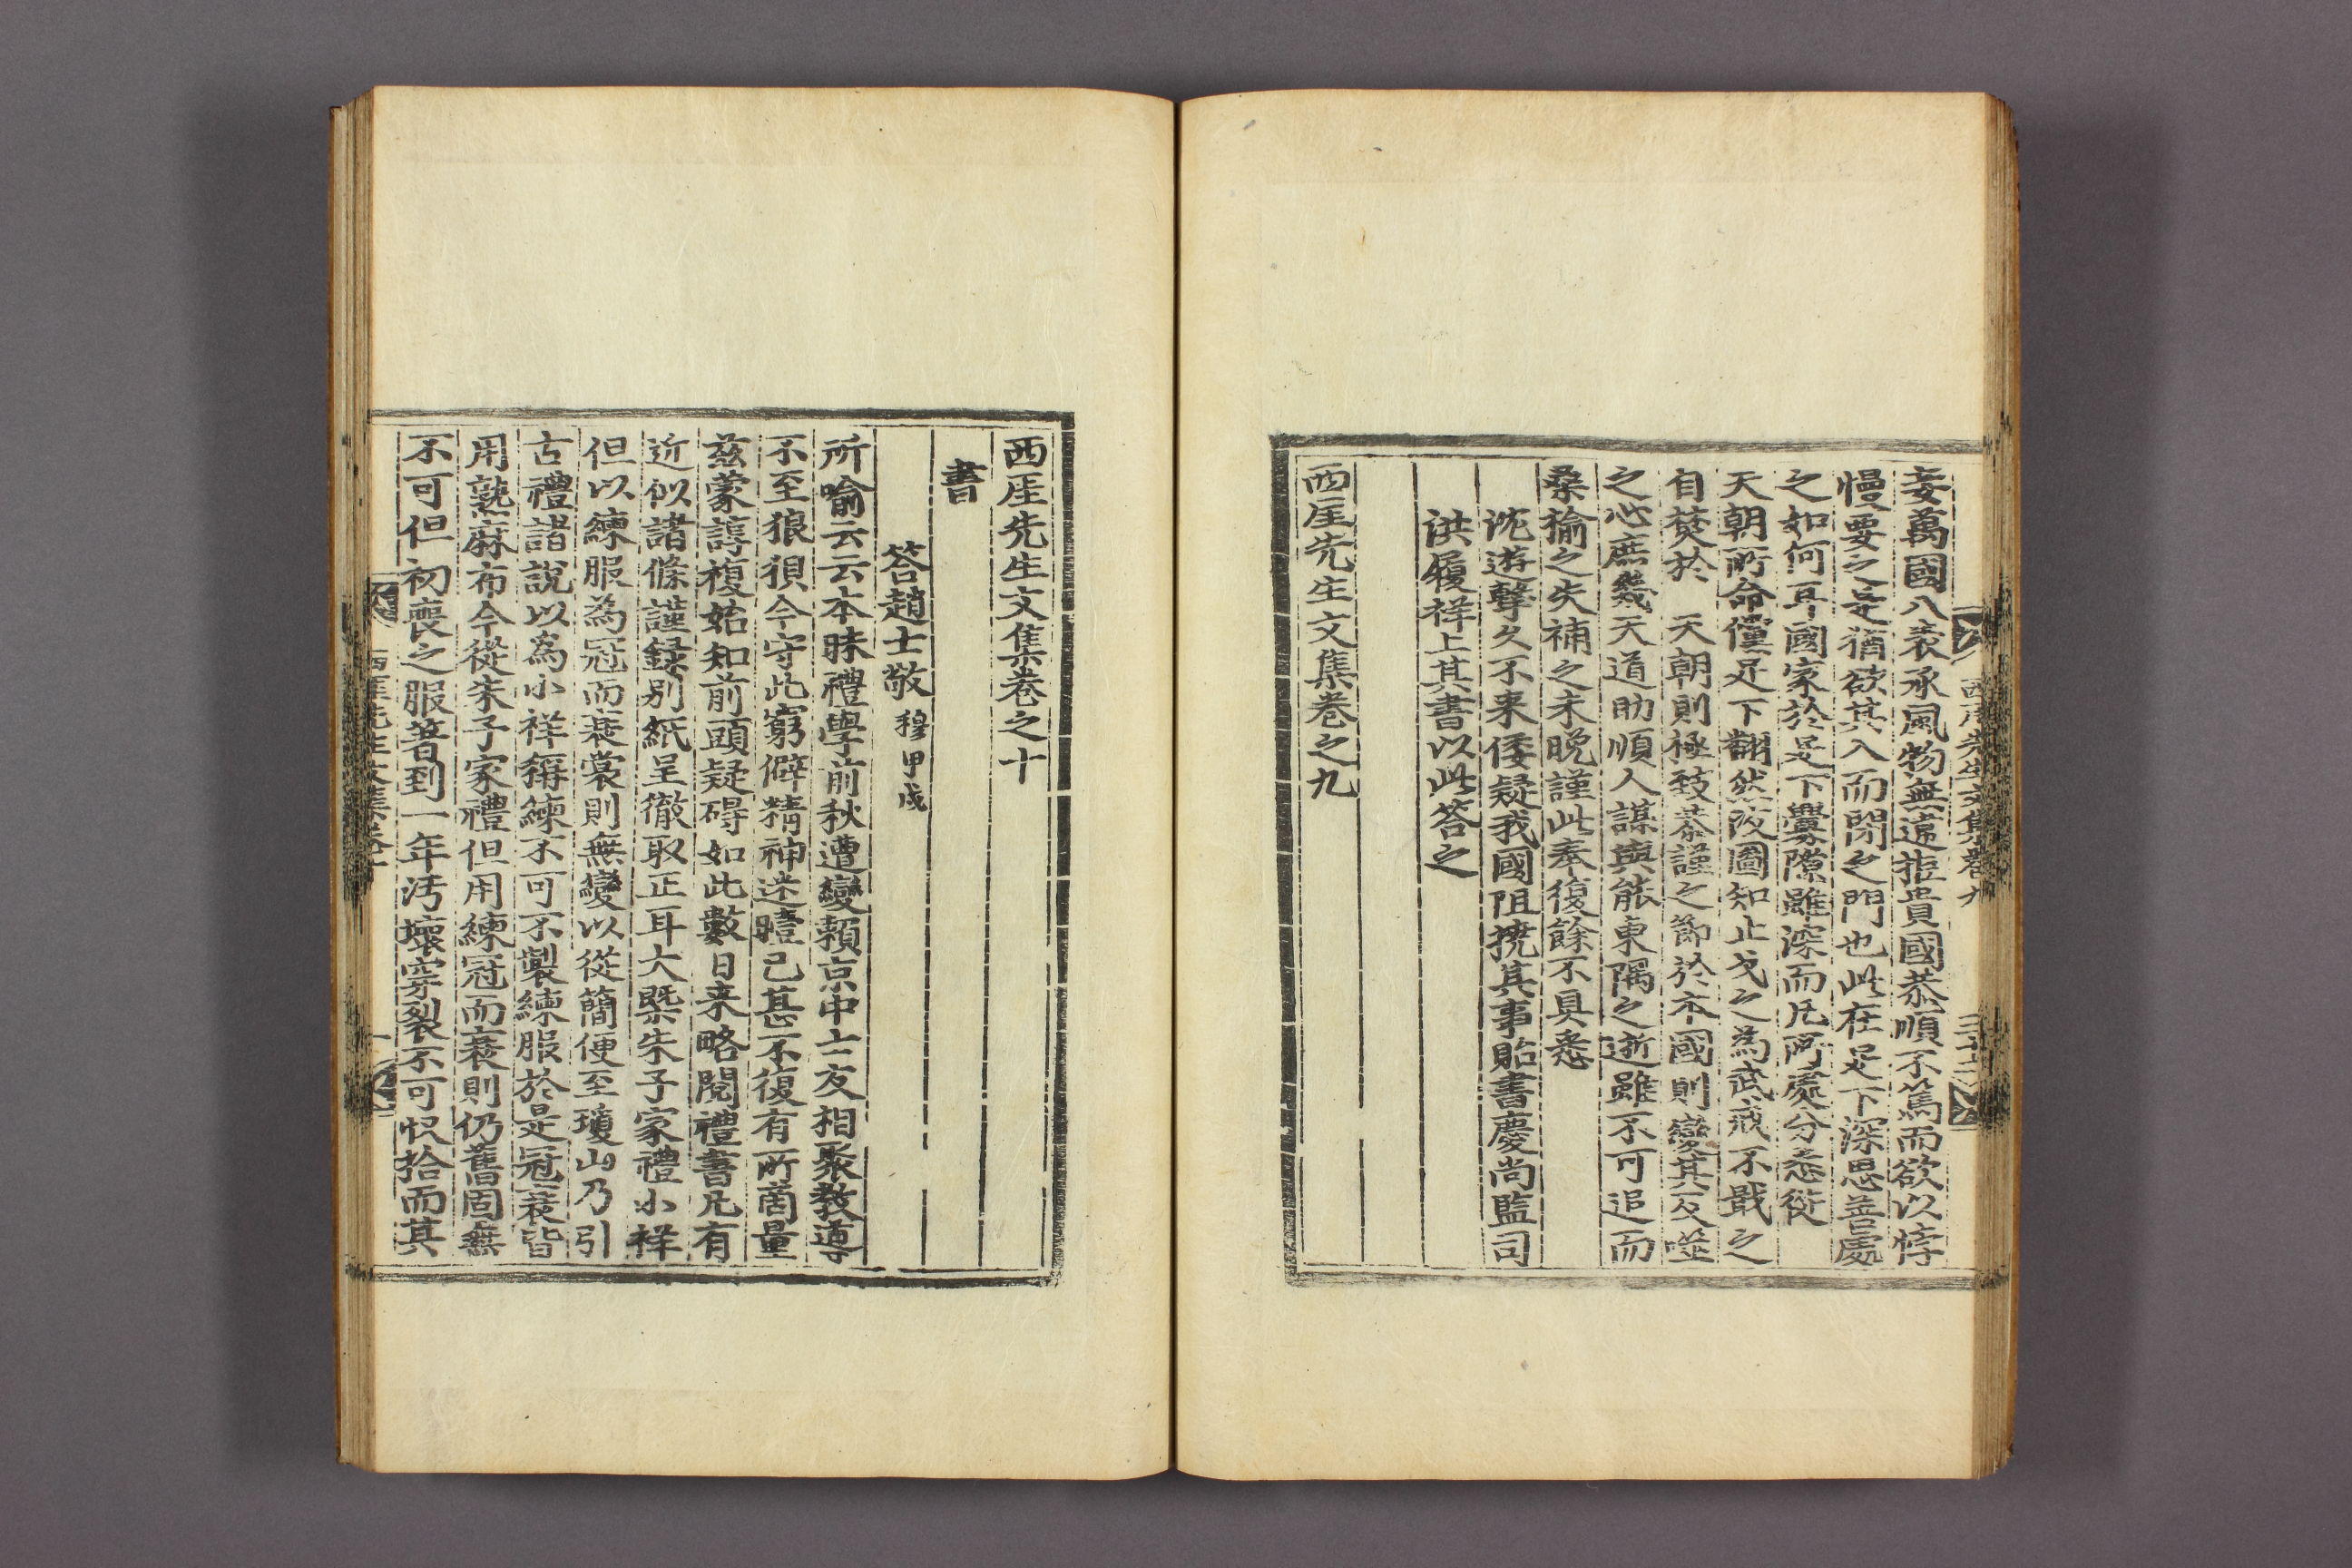 西厓先生文集卷九
妄萬國八表承風物無違拒貴國恭順不篤而欲以悖
慢要之是猶欲其入而閉之門也此在足下深思善處
之如何耳國家於足下釁隙雖深而凡所處分悉從
天朝所命儻足下翻然改圖知止戈之爲武戒不戢之
自焚於 天朝則極致恭謹之節於本國則變其反噬
之心庶幾天道助順人謀與能東隅之逝雖不可追而
桑榆之失補之未晩謹此奉復餘不具悉
沈遊擊久不來倭疑我國阻撓其事貽書慶尚監司
洪履祥上其書以此答之
西厓先生文集卷之九
西厓先生文集卷之十
書
答趙士敬 穆 甲戌
所喩云云本昧禮學前秋遭變賴京中士友相聚教導
不至狼狽今守此窮僻精神迷曀已甚不復有所商量
茲蒙諄複始知前頭疑碍如此數日来略閱禮書凡有
近似諸條謹錄別紙呈徹取正耳大槩朱子家禮小祥
但以練服為冠而衰裳則無變以從簡便至瓊山乃引
古禮諸說以為小祥稱練不可不製練服於是冠衰皆
用熟麻布今從朱子家禮但用練冠而衰則仍舊固無
不可但初喪之服着到一年汚壞穿裂不可收拾而其
西厓先生文集卷十 一